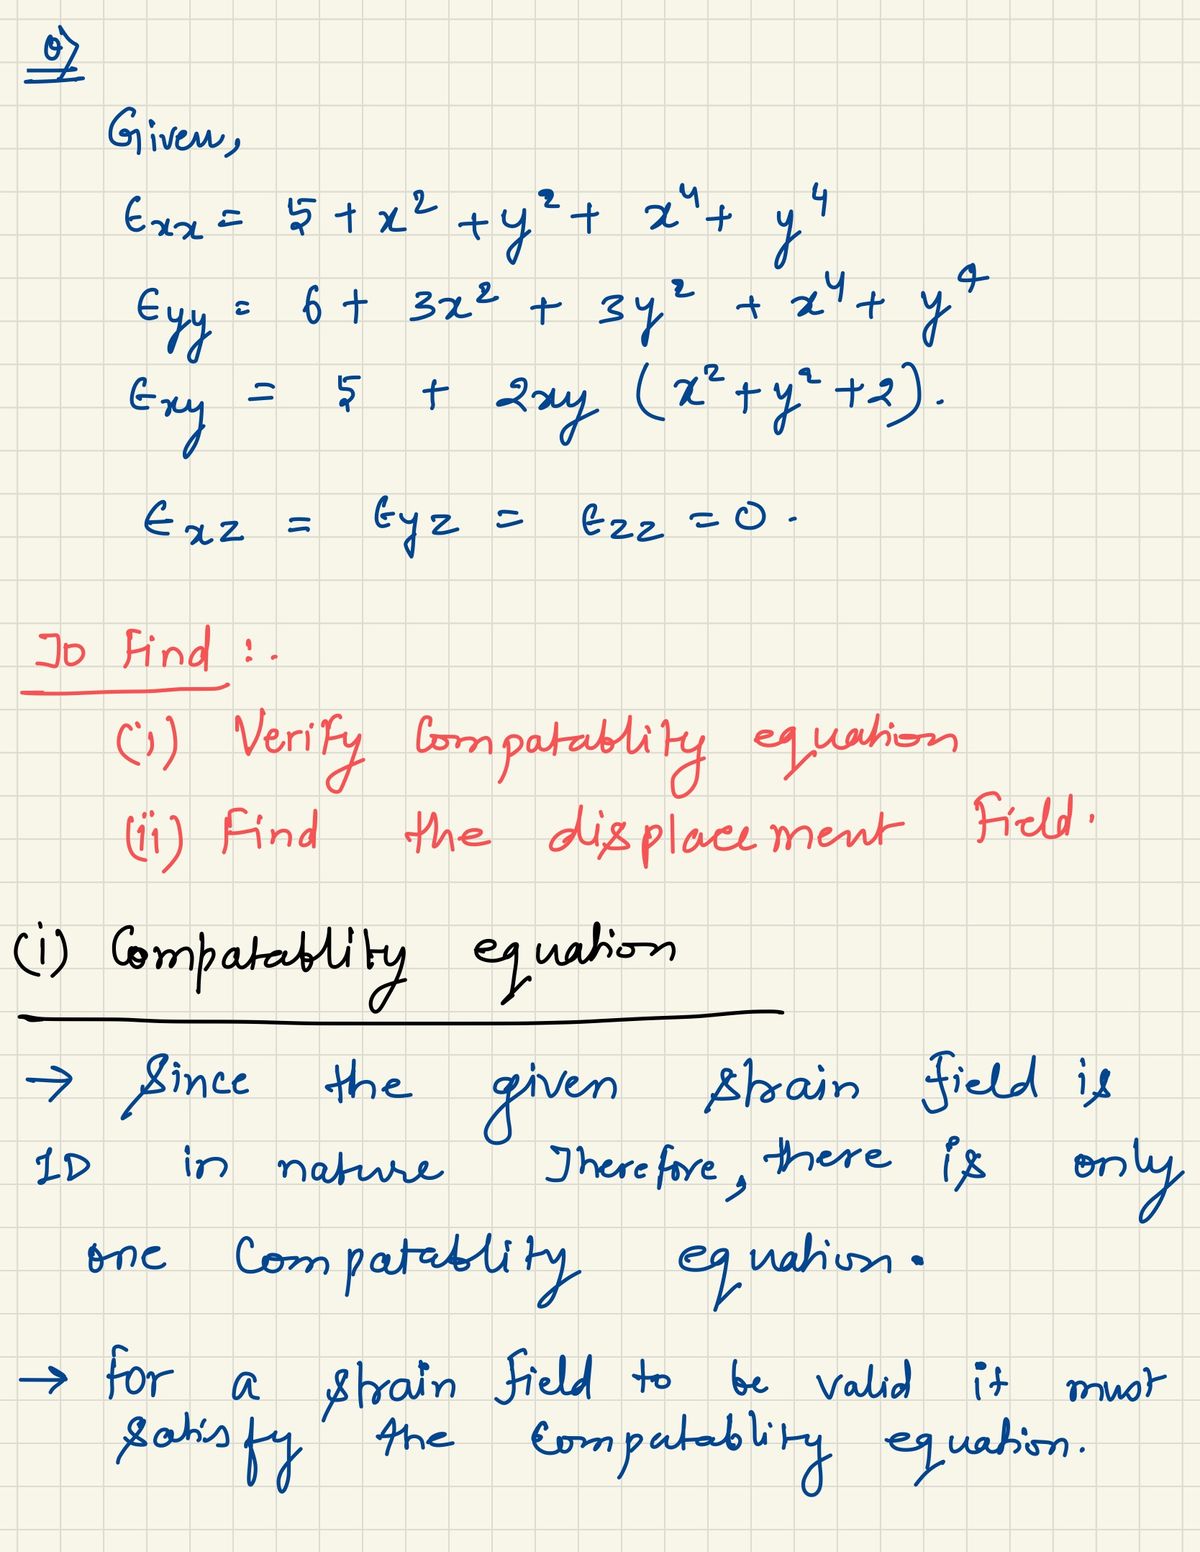 Q)
Given,
Exx = 5 + x² + y² + x⁴ + y⁴
Eyy = 6 + 3x² + 3y² + x⁴ + y⁴
Exy = 5 + 2xy (x² + y² + 2).
Exz = Eyz = Ezz = 0.
To Find :.
(i) Verify Compatablity equation
(ii) Find the displacement Field.
(i) Compatablity equation
→ Since the given strain field is
1D in nature Therefore, there is only
one Compatablity equation.
→ for a strain field to be valid it must
satisfy the Compatablity equation.